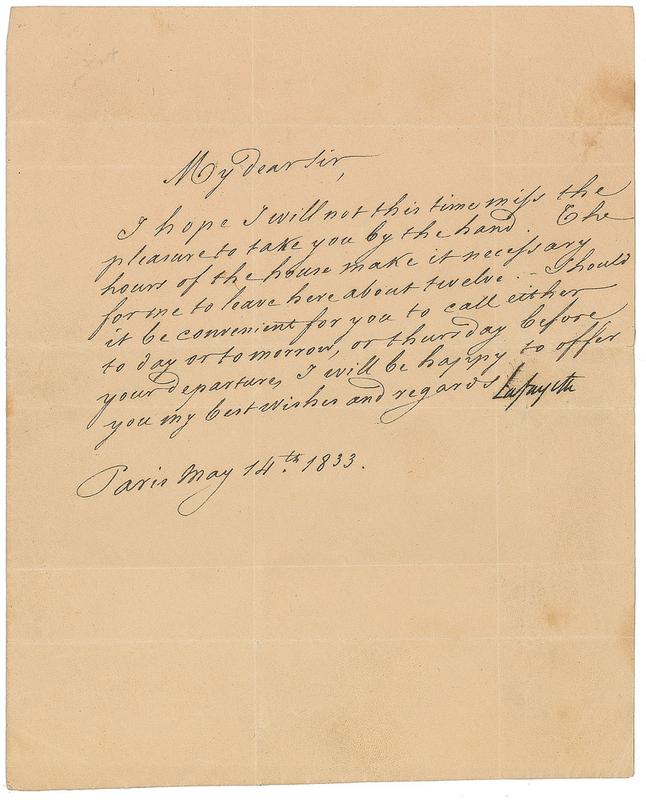 My dear Sir,
I hope I will not this time miss the
pleasure to take you by the hand. The
hours of the house make it necessary
for me to leave here about twelve. – Should
it be convenient for you to call either
to day or to morrow, or thursday before
your departure, I will be happy to offer
you my best wishes and regards Lafayette
Paris May 14th. 1833.